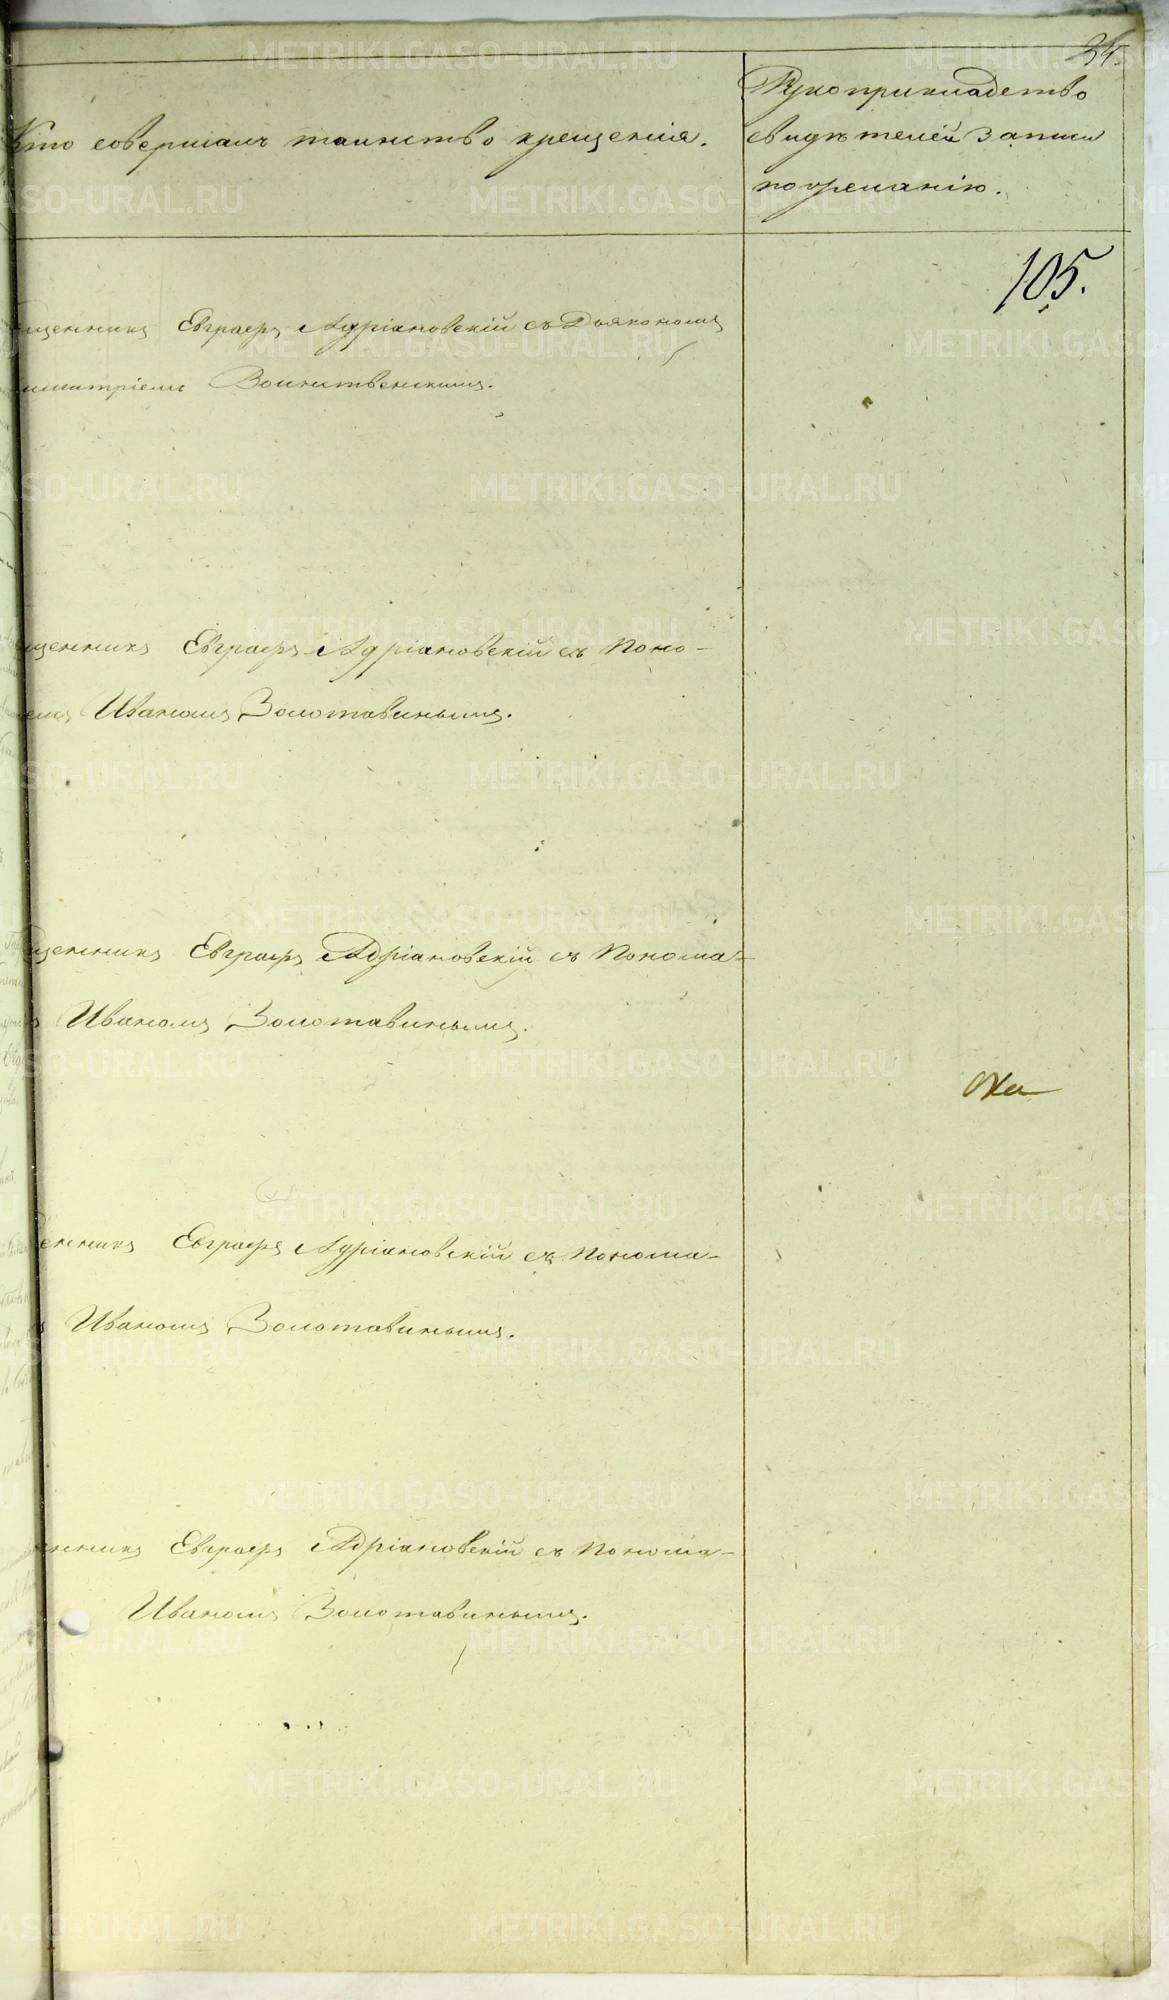 34.
Кто совершалъ таинство крещенія.
Рукоприкладство
свидѣтелей записи
по желанію.
105.
щенникъ Евграфъ Адріановскій съ Дьякономъ
имитріемъ Воинственскимъ.
щенникъ Евграфъ Адріановскій съ Поно-
емъ Иваномъ Золотавинымъ.
щенникъ Евграфъ Адріановскій съ Понома-
Иваномъ Золотавинымъ.
енникъ Евграфъ Адріановскій съ Понома-
Иваномъ Золотавинымъ.
нникъ Евграфъ Адріановскій съ Понома-
Иваномъ Золотавинымъ.
METRIKI.GASO-URAL.RU